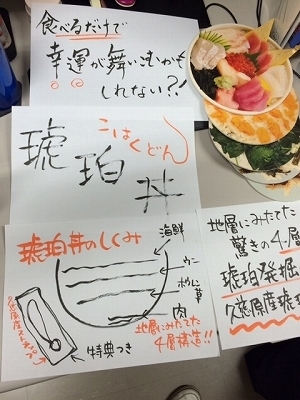 食べるだけで
幸運が舞いこむかも
しれない?!
こはくどん
琥珀丼
琥珀丼のしくみ
海鮮
ウニ
肉
地層にみたてた
4層構造!!
特典つき
地層にみたてた
驚きの4層
琥珀発掘
久慈原産琥